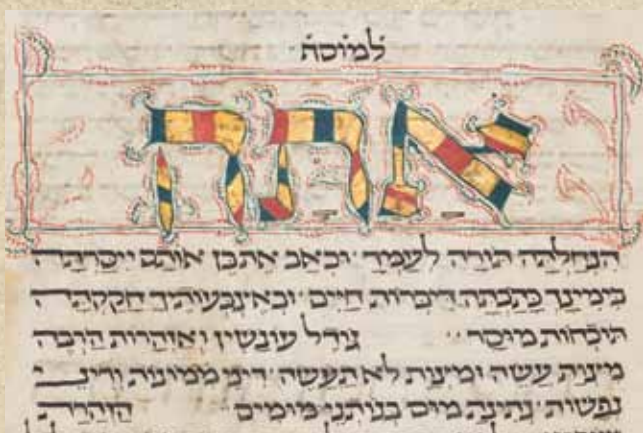 למוסף
אתה
הנחלתה תורה לעמך וכאב את בן אותם ייסרתה
בימינך כתבתה דיברות חיים
תוכחות מוסר גודל עונשין ואזהרות הרבה
מצות עשה ומצות לא תעשה דיני ממונות ודיני
נפשות נתינת מים הזהרת